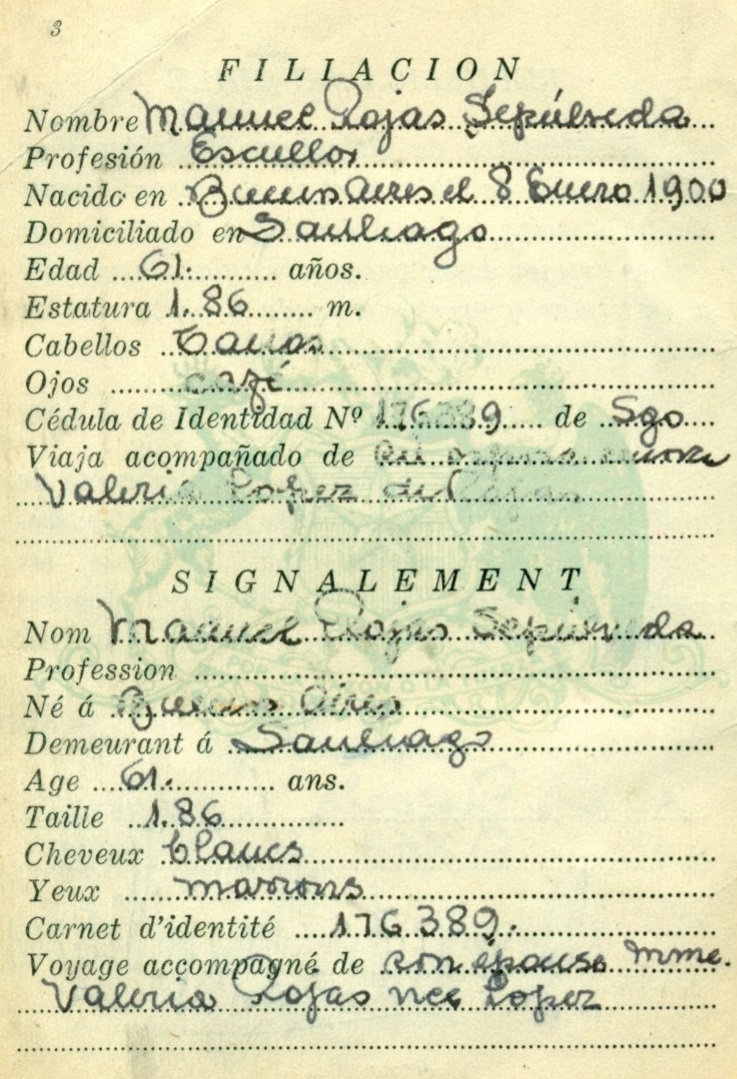 3
FILIACION
Nombre Manuel Rojas Sepúlveda
Profesión Escritor
Nacido en Buenos Aires el 8 Enero 1900
Domiciliado en Santiago
Edad 61. años.
Estatura 1.86 m.
Cabellos Canos
Ojos café
Cédula de Identidad Nº 176389 de Sgo
Viaja acompañado de señora
Valeria Lopez de Rojas
SIGNALEMENT
Nom Manuel Rojas Sepúlveda
Profession
Né á Buenos Aires
Demeurant á Santiago
Age 61. ans.
Taille 1.86
Cheveux blancs
Yeux marrons
Carnet d'identité 176389.
Voyage accompagné de son épouse Mme.
Valeria Rojas nee Lopez